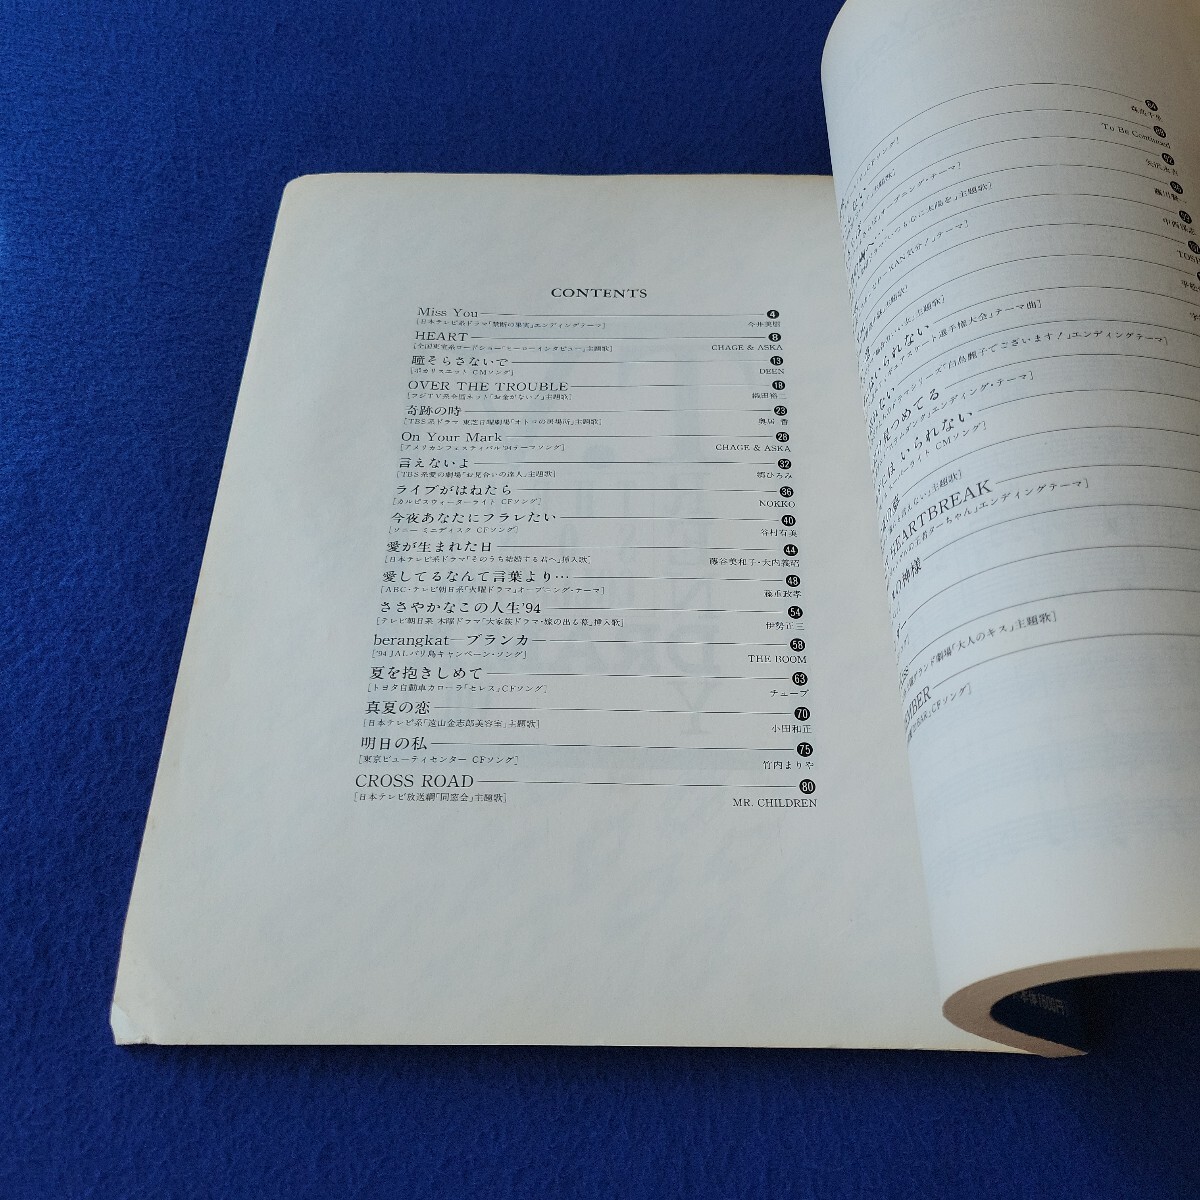 CONTENTS
Miss You 4
[日本テレビ系ドラマ「禁断の果実」エンディングテーマ] 今井美樹
HEART 8
[全国東宝系ロードショー「ヒーローインタビュー」主題歌] CHAGE & ASKA
瞳そらさないで
[ポカリスエット CMソング] DEEN
OVER THE TROUBLE 18
[フジTV系全国ネット「お金がない!」主題歌] 織田裕二
奇跡の時 23
[TBS系ドラマ 東芝日曜劇場「オトコの居場所」主題歌] 奥居 香
On Your Mark 28
[アメリカンフェスティバル'94テーマソング] CHAGE & ASKA
言えないよ 32
[TBS系愛の劇場「お見合いの達人」主題歌] 郷ひろみ
ライブがはねたら 36
[カルピスウォーターライト CFソング] NOKKO
今夜あなたにフラレたい 40
[ソニー ミニディスク CFソング] 谷村有美
愛が生まれた日 44
[日本テレビ系ドラマ「そのうち結婚する君へ」挿入歌] 藤谷美和子・大内義昭
愛してるなんて言葉より… 48
[ABC・テレビ朝日系「火曜ドラマ」オープニング・テーマ] 藤重政孝
ささやかなこの人生'94 54
[テレビ朝日系 木曜ドラマ「大家族ドラマ・嫁の出る幕」挿入歌] 伊勢正三
berangkat—ブランカ 58
['94 JALバリ島キャンペーン・ソング] THE BOOM
夏を抱きしめて 63
[トヨタ自動車カローラ「セレス」CFソング] チューブ
真夏の恋 70
[日本テレビ系「遠山金志郎美容室」主題歌] 小田和正
明日の私 75
[東京ビューティセンター CFソング] 竹内まりや
CROSS ROAD 80
[日本テレビ放送網「同窓会」主題歌] MR. CHILDREN
84
To Be Continued
オープニング・テーマ]
いつも心に太陽を」主題歌]
KAN気分!」テーマ]
主題歌]
いられない
スケート選手権大会」テーマ曲]
ドラマシリーズ「白鳥麗子でございます!」エンディングテーマ]
見つめてる
エンディング・テーマ]
はいられない
ライト CMソング]
主題歌]
HEARTBREAK
ターちゃん」エンディングテーマ]
の神様
グランド劇場「大人のキス」主題歌]
MBER
CFソング]